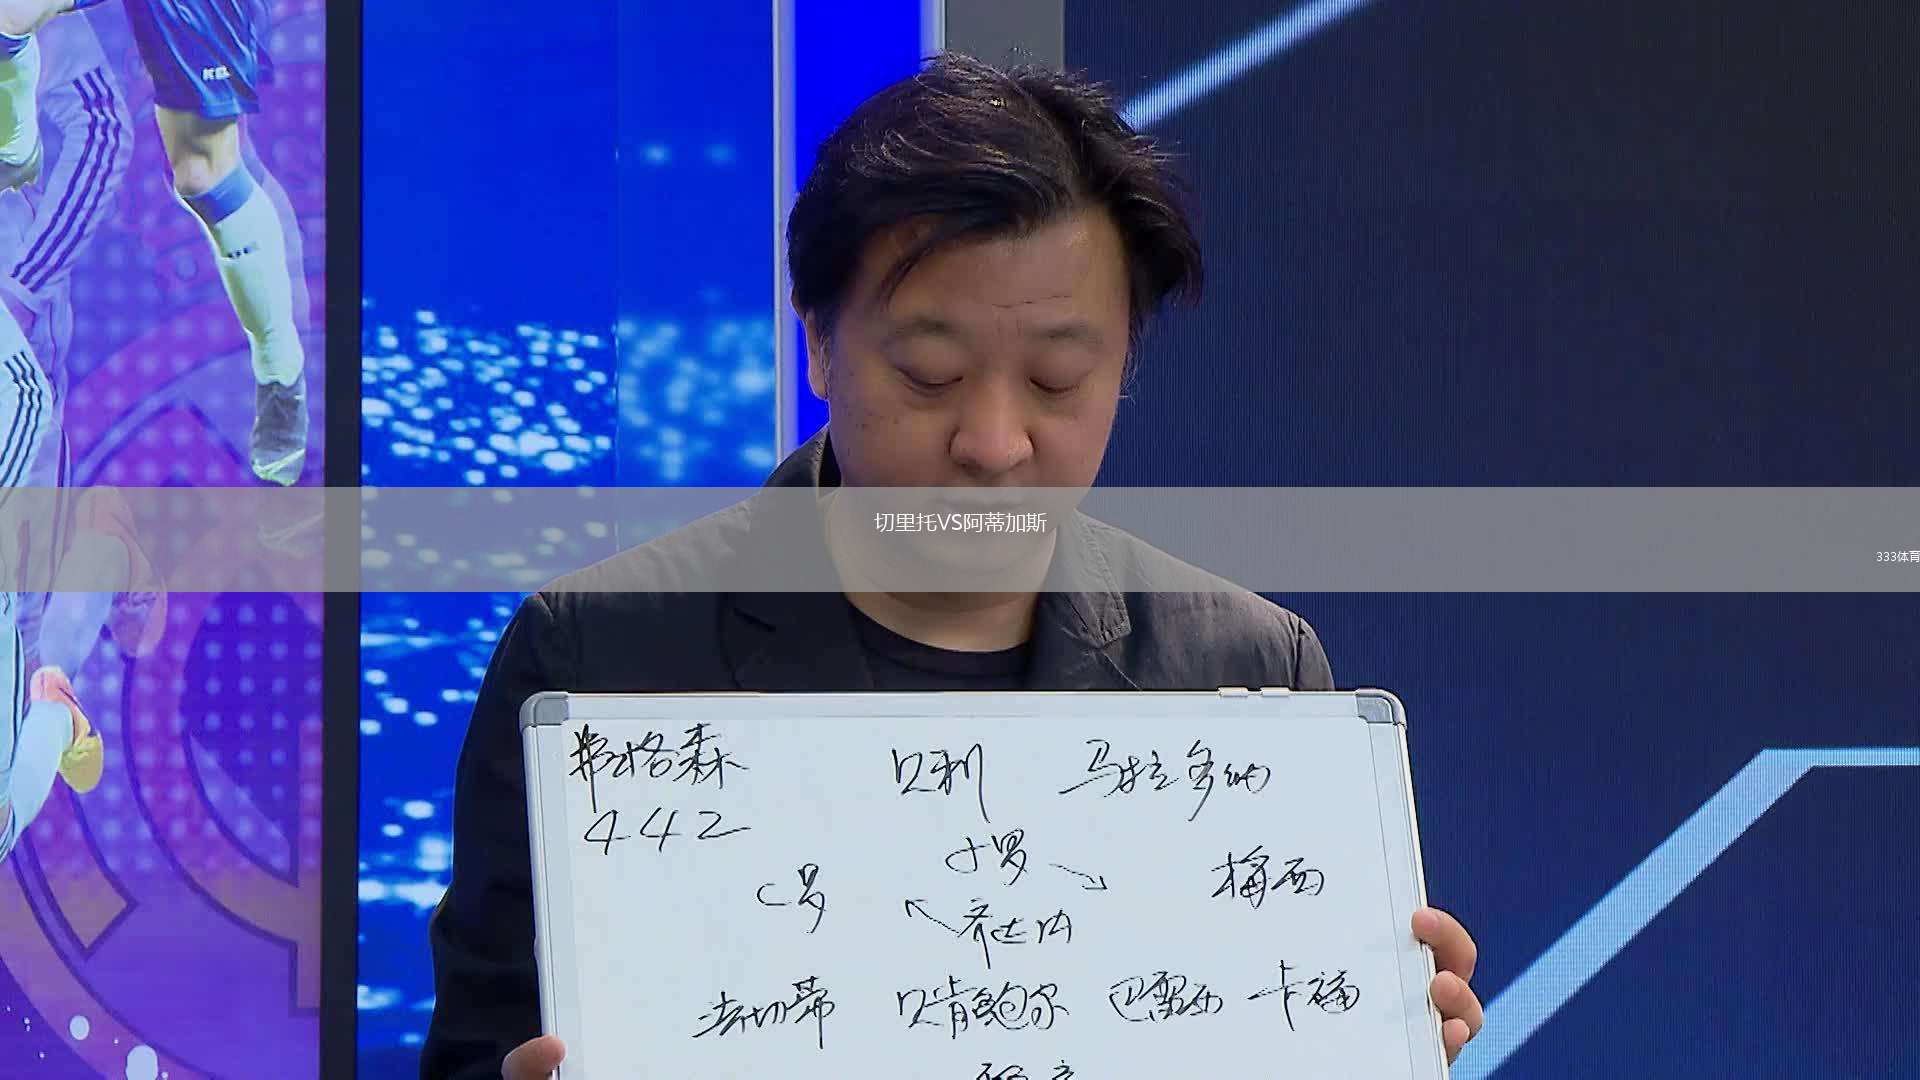 切里托VS阿蒂加斯
333体育
弗格森 贝利 马拉多纳
442
小罗
C罗 梅西
齐达内
法切蒂 贝肯鲍尔 巴雷西 卡福